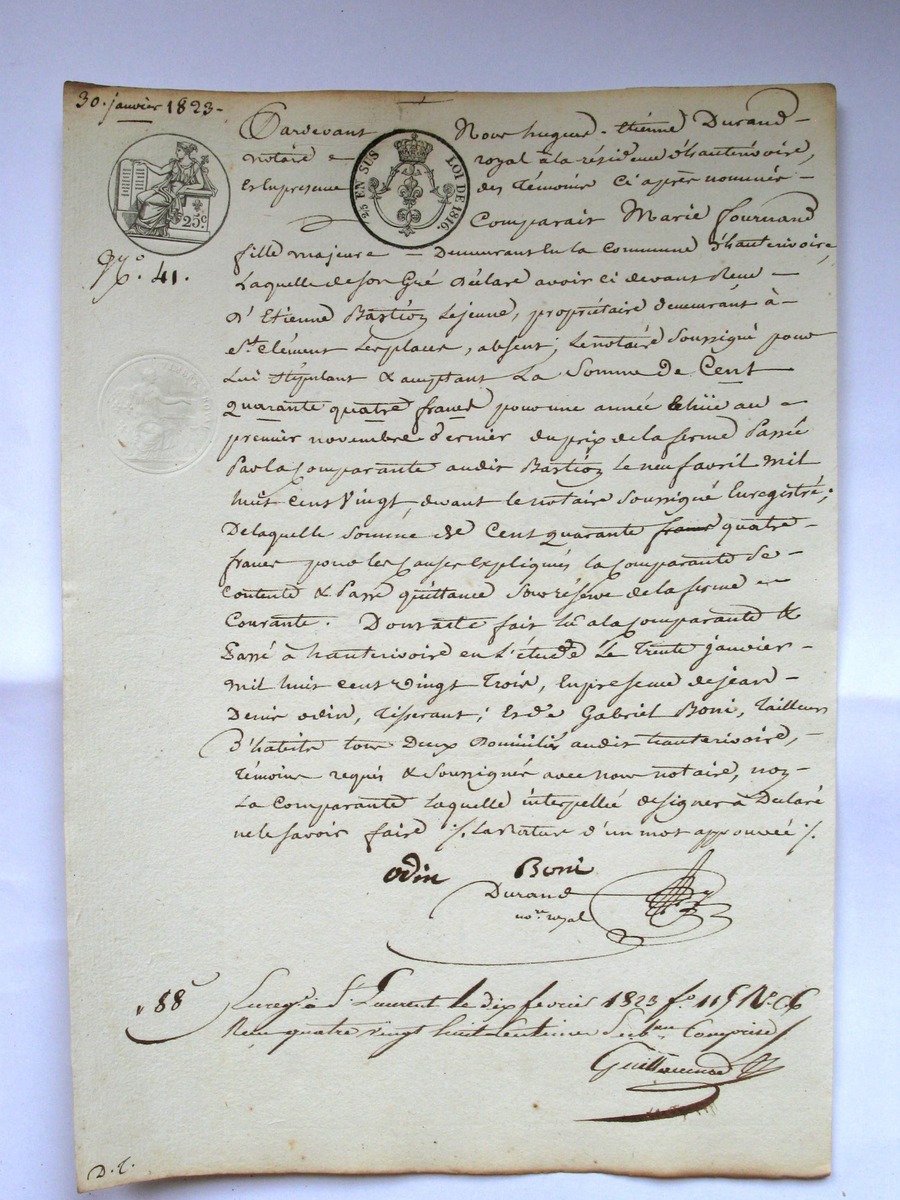 30. janvier 1823.
Pardevant Nous hugues-étienne Durand
notaire royal à la résidence d'hauterivoire,
Et En presence des Témoins Ci après nommés
25 EN SUS LOI DE 1816.
25c.
Comparait Marie fournand
fille majeure - Demeurant En la Commune d'hauterivoire,
N.° 41.
Laquelle de son Gré Déclare avoir ci devant Reçu -
D'Etienne Bastion Lejeune, propriétaire demeurant à -
St. Clément Lesplaces, absent; Le notaire Soussigné pour
Lui Stipulant & acceptant La Somme De Cent
quarante quatre francs pour une année Echüe au
premier novembre dernier du prix de la ferme Passée
Par la Comparante audit Bastion Le neuf avril Mil
huit cent Vingt, devant le notaire Soussigné Enregistré;
De laquelle Somme de Cent quarante francs quatre
francs pour les Causes Expliquées la Comparante Se
Contente & Passe quittance Sous réserve de la ferme
Courante. Dont acte fait Lu a la Comparante &
Passé à hauterivoire en L'étude Le Trente janvier
Mil huit cent vingt Trois, En presence de jean
Denis odin, Tisserant; Et de Gabriel Boni, Tailleur
D'habits tous Deux Domiciliés audit hauterivoire,
Témoins requis & Soussignés avec nous notaire, non
La Comparante Laquelle interpellée de signer à Déclaré
ne le savoir faire ./. La rature d'un mot approuvée ./.
odin Boni
Durand
nore royal
88c Enreg. à St. Laurent le dix fevrier 1823 fo. 115
Reçu quatre vingt huit Centimes Comprise
D. T.